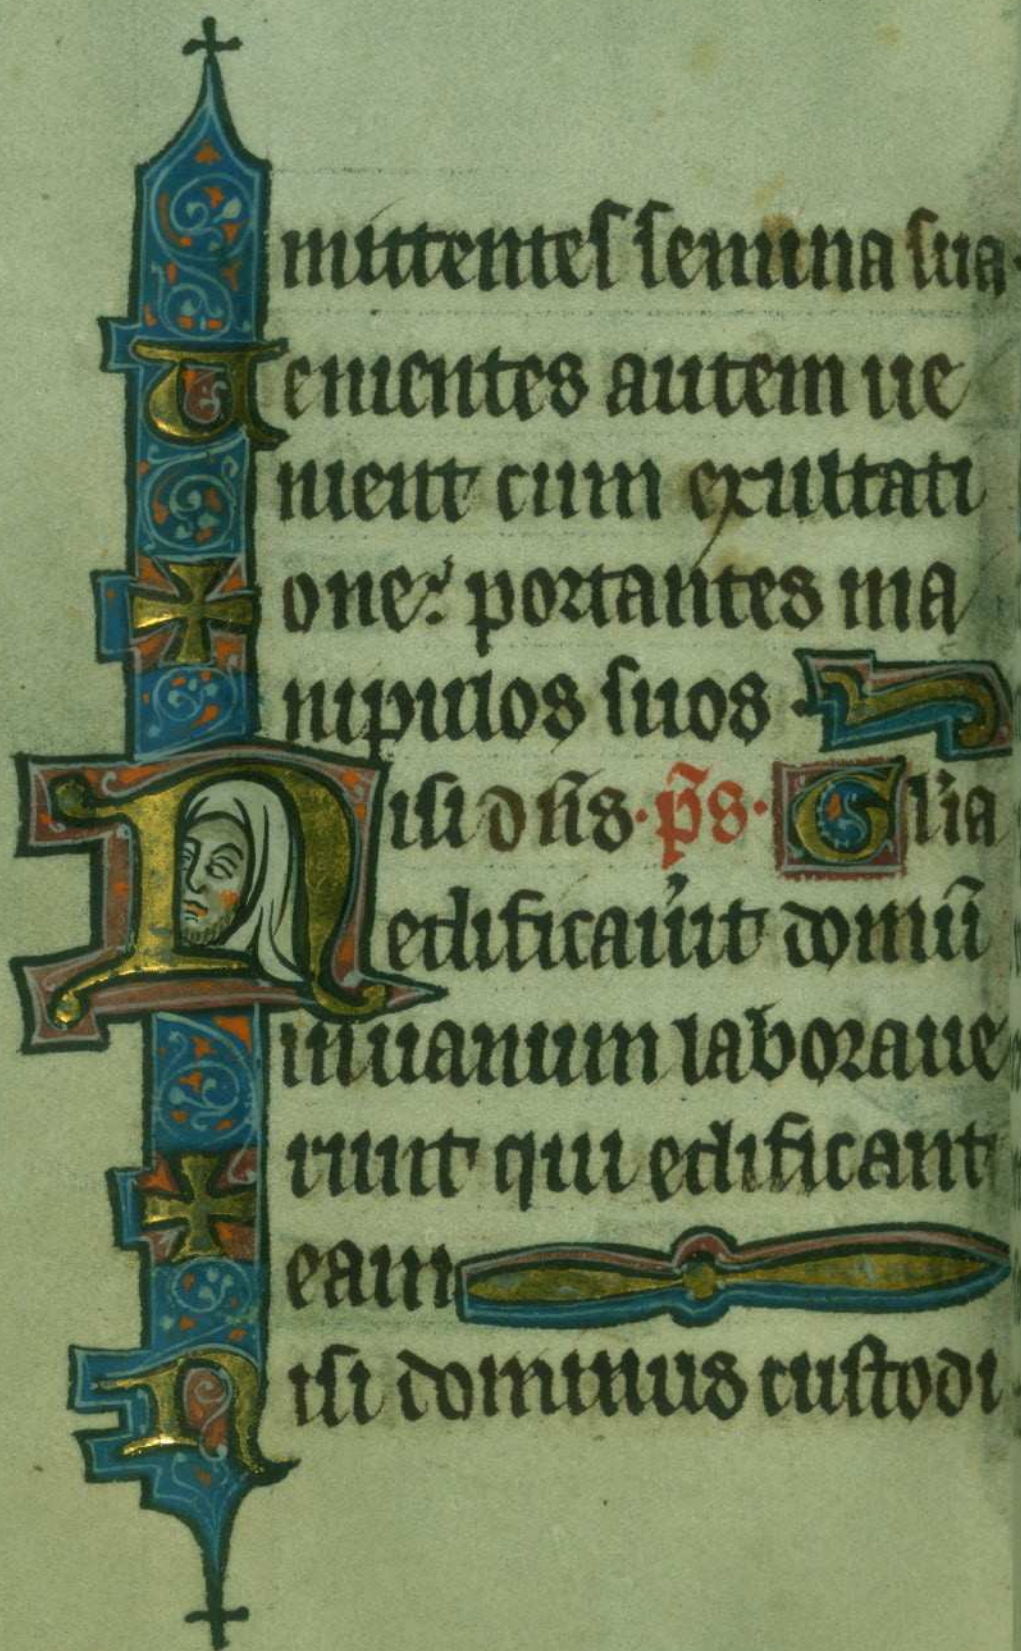 mittentes semina sua.
Uenientes autem ue
nient cum exultati
one: portantes ma
nipulos suos.
Nisi dn̄s. p̄s. Gl'ia
edificau'it domū
inuanum laboraue
runt qui edificant
eam
Nisi dominus custodi